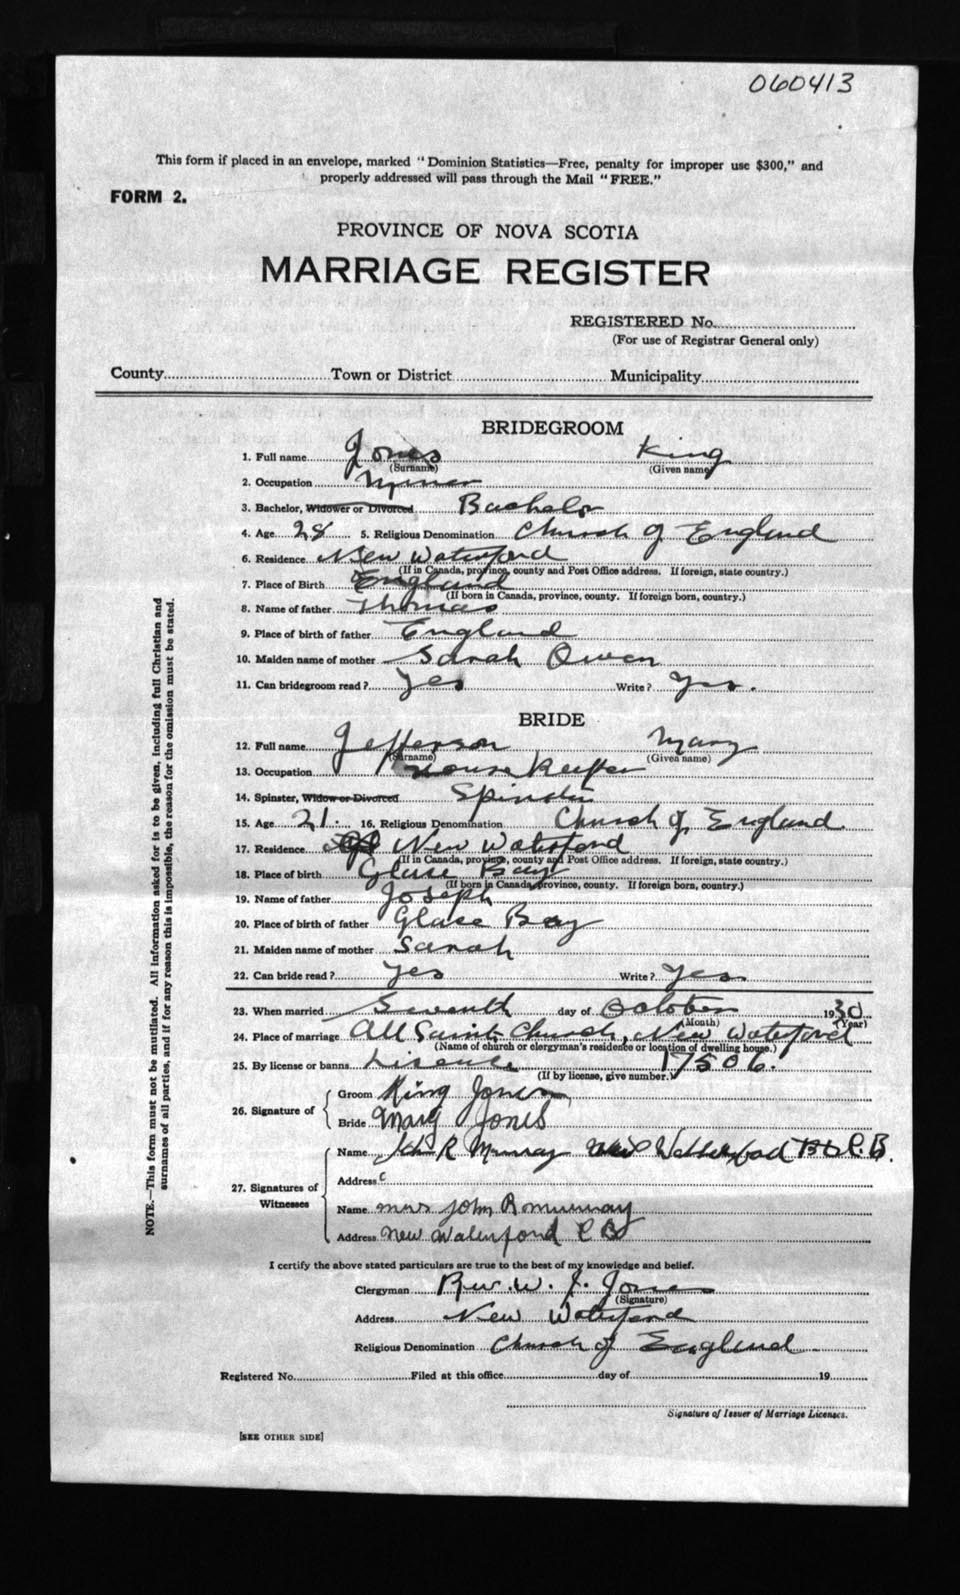 060413
This form if placed in an envelope, marked "Dominion Statistics—Free, penalty for improper use $300," and
properly addressed will pass through the Mail "FREE."
FORM 2.
PROVINCE OF NOVA SCOTIA
MARRIAGE REGISTER
REGISTERED No.
(For use of Registrar General only)
County Town or District Municipality
BRIDEGROOM
1. Full name Jones King
(Surname) (Given name)
2. Occupation Miner
3. Bachelor, Widower or Divorced Bachelor
4. Age 28 5. Religious Denomination Church of England
6. Residence New Waterford
(If in Canada, province, county and Post Office address. If foreign, state country.)
7. Place of Birth England
(If born in Canada, province, county. If foreign born, country.)
8. Name of father Thomas
9. Place of birth of father England
10. Maiden name of mother Sarah Owen
11. Can bridegroom read? Yes Write? Yes.
BRIDE
12. Full name Jefferson Mary
(Surname) (Given name)
13. Occupation Housekeeper
14. Spinster, Widow or Divorced Spinster
15. Age 21. 16. Religious Denomination Church of England
17. Residence New Waterford
(If in Canada, province, county and Post Office address. If foreign, state country.)
18. Place of birth Glace Bay
(If born in Canada, province, county. If foreign born, country.)
19. Name of father Joseph
20. Place of birth of father Glace Bay
21. Maiden name of mother Sarah
22. Can bride read? Yes Write? Yes
23. When married Seventh day of October 1930
(Month) (Year)
24. Place of marriage All Saints Church, New Waterford
(Name of church or clergyman's residence or location of dwelling house.)
25. By license or banns License 17506.
(If by license, give number.)
26. Signature of
Groom King Jones
Bride Mary Jones
27. Signatures of Witnesses
Name John R Murray New Waterford C.B.
Address
Name Mrs John R Murray
Address New Waterford C B
I certify the above stated particulars are true to the best of my knowledge and belief.
Clergyman Rev. W. J. Jones
(Signature)
Address New Waterford
Religious Denomination Church of England
Registered No. Filed at this office day of 19
Signature of Issuer of Marriage Licenses.
[SEE OTHER SIDE]
NOTE.—This form must not be mutilated. All information asked for is to be given, including full Christian and
surnames of all parties, and if for any reason this is impossible, the reason for the omission must be stated.